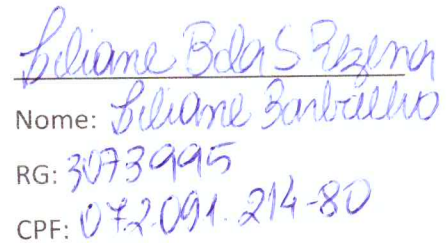 Liliane B da S Rezena
Nome: Liliane Barbalho
RG: 3073995
CPF: 072.091.214-80